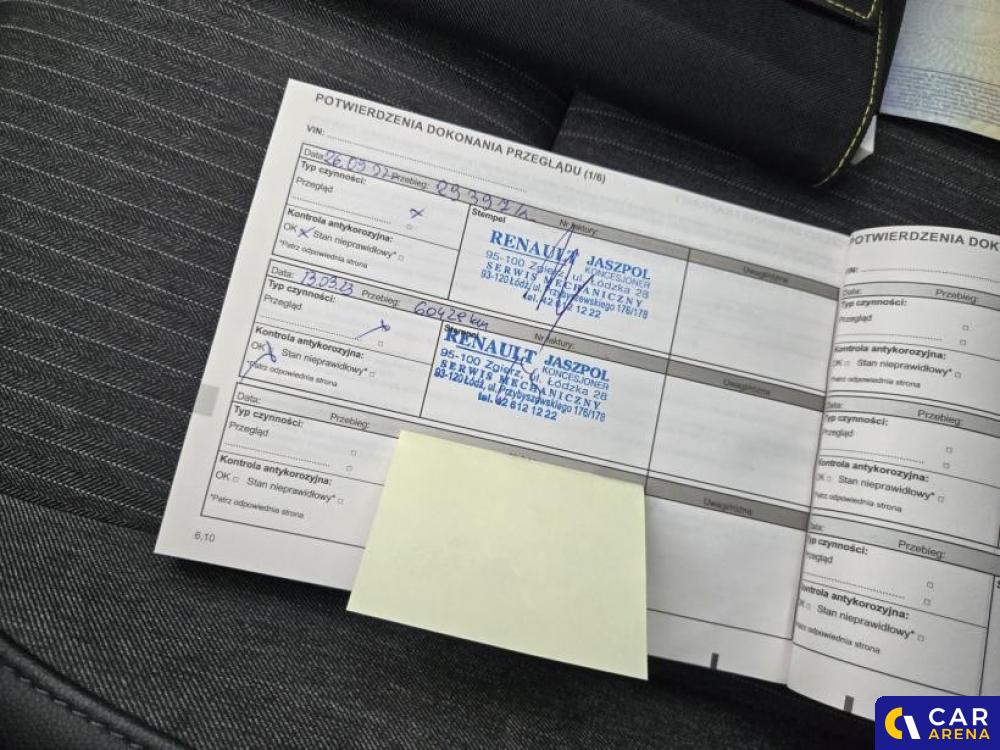 POTWIERDZENIA DOKONANIA PRZEGLĄDU (1/6)
VIN:
Data: 26.09.22 Przebieg: 29397 k
Typ czynności:
Przegląd x
Stempel
Nr faktury:
Uwagi/różne
Kontrola antykorozyjna:
OK x Stan nieprawidłowy*
*Patrz odpowiednia strona
RENAULT JASZPOL
KONCESJONER
95-100 Zgierz, ul. Łódzka 28
SERWIS MECHANICZNY
93-120 Łódź, ul. Przybyszewskiego 176/178
tel. 42 612 12 22
Data: 13.09.23 Przebieg: 60429 km
Typ czynności:
Przegląd
Stempel
Nr faktury:
Uwagi/różne
Kontrola antykorozyjna:
OK Stan nieprawidłowy*
*Patrz odpowiednia strona
RENAULT JASZPOL
KONCESJONER
95-100 Zgierz, ul. Łódzka 28
SERWIS MECHANICZNY
93-120 Łódź, ul. Przybyszewskiego 176/178
tel. 42 612 12 22
Data: Przebieg:
Typ czynności:
Przegląd
Uwagi/różne
Kontrola antykorozyjna:
OK Stan nieprawidłowy*
*Patrz odpowiednia strona
6.10
POTWIERDZENIA DOK
VIN:
Data: Przebieg:
Typ czynności:
Przegląd
Kontrola antykorozyjna:
OK Stan nieprawidłowy*
*Patrz odpowiednia strona
Data: Przebieg:
Typ czynności:
Przegląd
Kontrola antykorozyjna:
OK Stan nieprawidłowy*
*Patrz odpowiednia strona
Data: Przebieg:
Typ czynności:
Przegląd
Kontrola antykorozyjna:
OK Stan nieprawidłowy*
*Patrz odpowiednia strona
CAR
ARENA